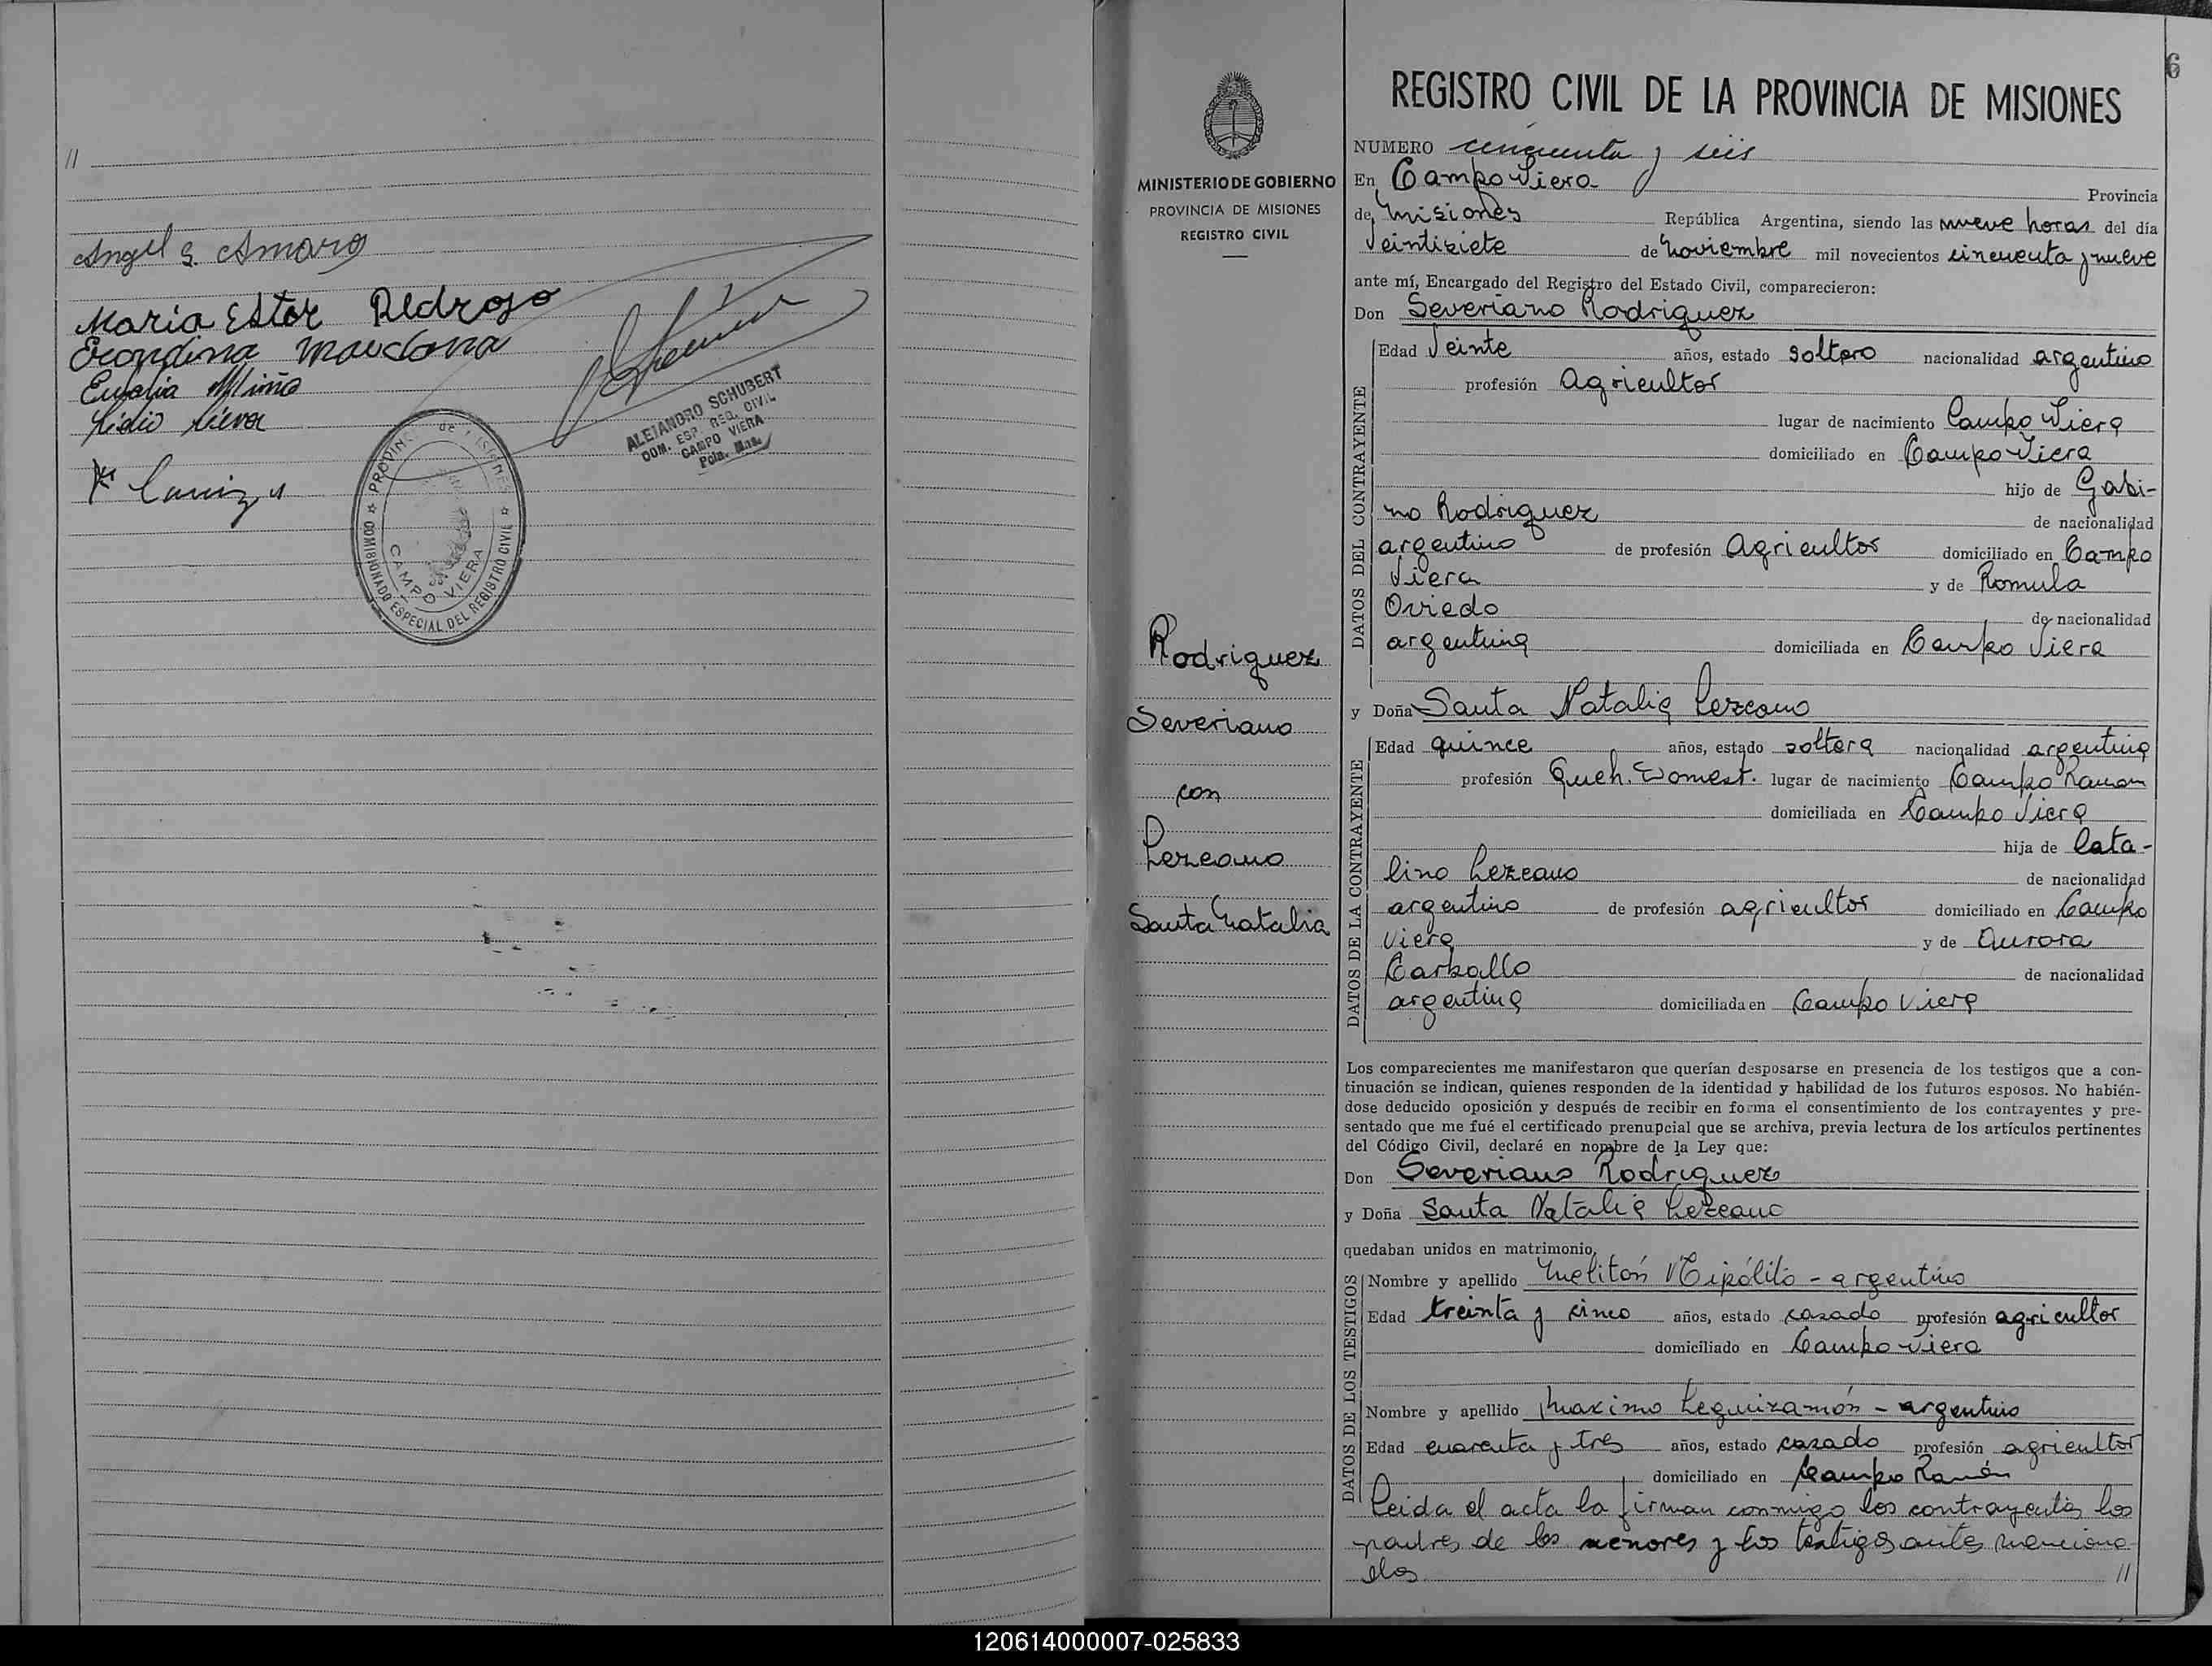 //
Angel S. Amaro
Maria Ester Pedrozo
Erondina
Eulalia Miño
Lidio
ALEJANDRO SCHUBERT
COM. ESP. REG. CIVIL
CAMPO VIERA
Pcia. Mnes.
PROVINCIA DE MISIONES
COMISIONADO ESPECIAL DEL REGISTRO CIVIL
CAMPO VIERA
6
MINISTERIO DE GOBIERNO
PROVINCIA DE MISIONES
REGISTRO CIVIL
Rodriguez
Severiano
con
Lezcano
Santa Natalia
REGISTRO CIVIL DE LA PROVINCIA DE MISIONES
NUMERO cincuenta y seis
En Campo Viera Provincia
de Misiones República Argentina, siendo las nueve horas del día
Veintisiete de Noviembre mil novecientos cincuenta y nueve
ante mí, Encargado del Registro del Estado Civil, comparecieron:
Don Severiano Rodriguez
DATOS DEL CONTRAYENTE
Edad Veinte años, estado soltero nacionalidad argentino
profesión Agricultor
lugar de nacimiento Campo Viera
domiciliado en Campo Viera
hijo de Gabi-
no Rodriguez de nacionalidad
argentino de profesión Agricultor domiciliado en Campo
Viera y de Romula
Oviedo de nacionalidad
argentina domiciliada en Campo Viera
y Doña Santa Natalia Lezcano
DATOS DE LA CONTRAYENTE
Edad quince años, estado soltera nacionalidad argentina
profesión Queh. Domest. lugar de nacimiento Campo Ramon
domiciliada en Campo Viera
hija de Cata-
lino Lezcano de nacionalidad
argentino de profesión agricultor domiciliado en Campo
Viera y de Aurora
Carballo de nacionalidad
argentina domiciliada en Campo Viera
Los comparecientes me manifestaron que querían desposarse en presencia de los testigos que a con-
tinuación se indican, quienes responden de la identidad y habilidad de los futuros esposos. No habién-
dose deducido oposición y después de recibir en forma el consentimiento de los contrayentes y pre-
sentado que me fué el certificado prenupcial que se archiva, previa lectura de los artículos pertinentes
del Código Civil, declaré en nombre de la Ley que:
Don Severiano Rodriguez
y Doña Santa Natalia Lezcano
quedaban unidos en matrimonio.
DATOS DE LOS TESTIGOS
Nombre y apellido Melitón Hipólito - argentino
Edad treinta y cinco años, estado casado profesión agricultor
domiciliado en Campo Viera
Nombre y apellido Maximo Leguizamón - argentino
Edad cuarenta y tres años, estado casado profesión agricultor
domiciliado en Campo Ramón
Leida el acta la firman conmigo los contrayentes los
padres de los menores y los testigos antes menciona
dos //
120614000007-025833